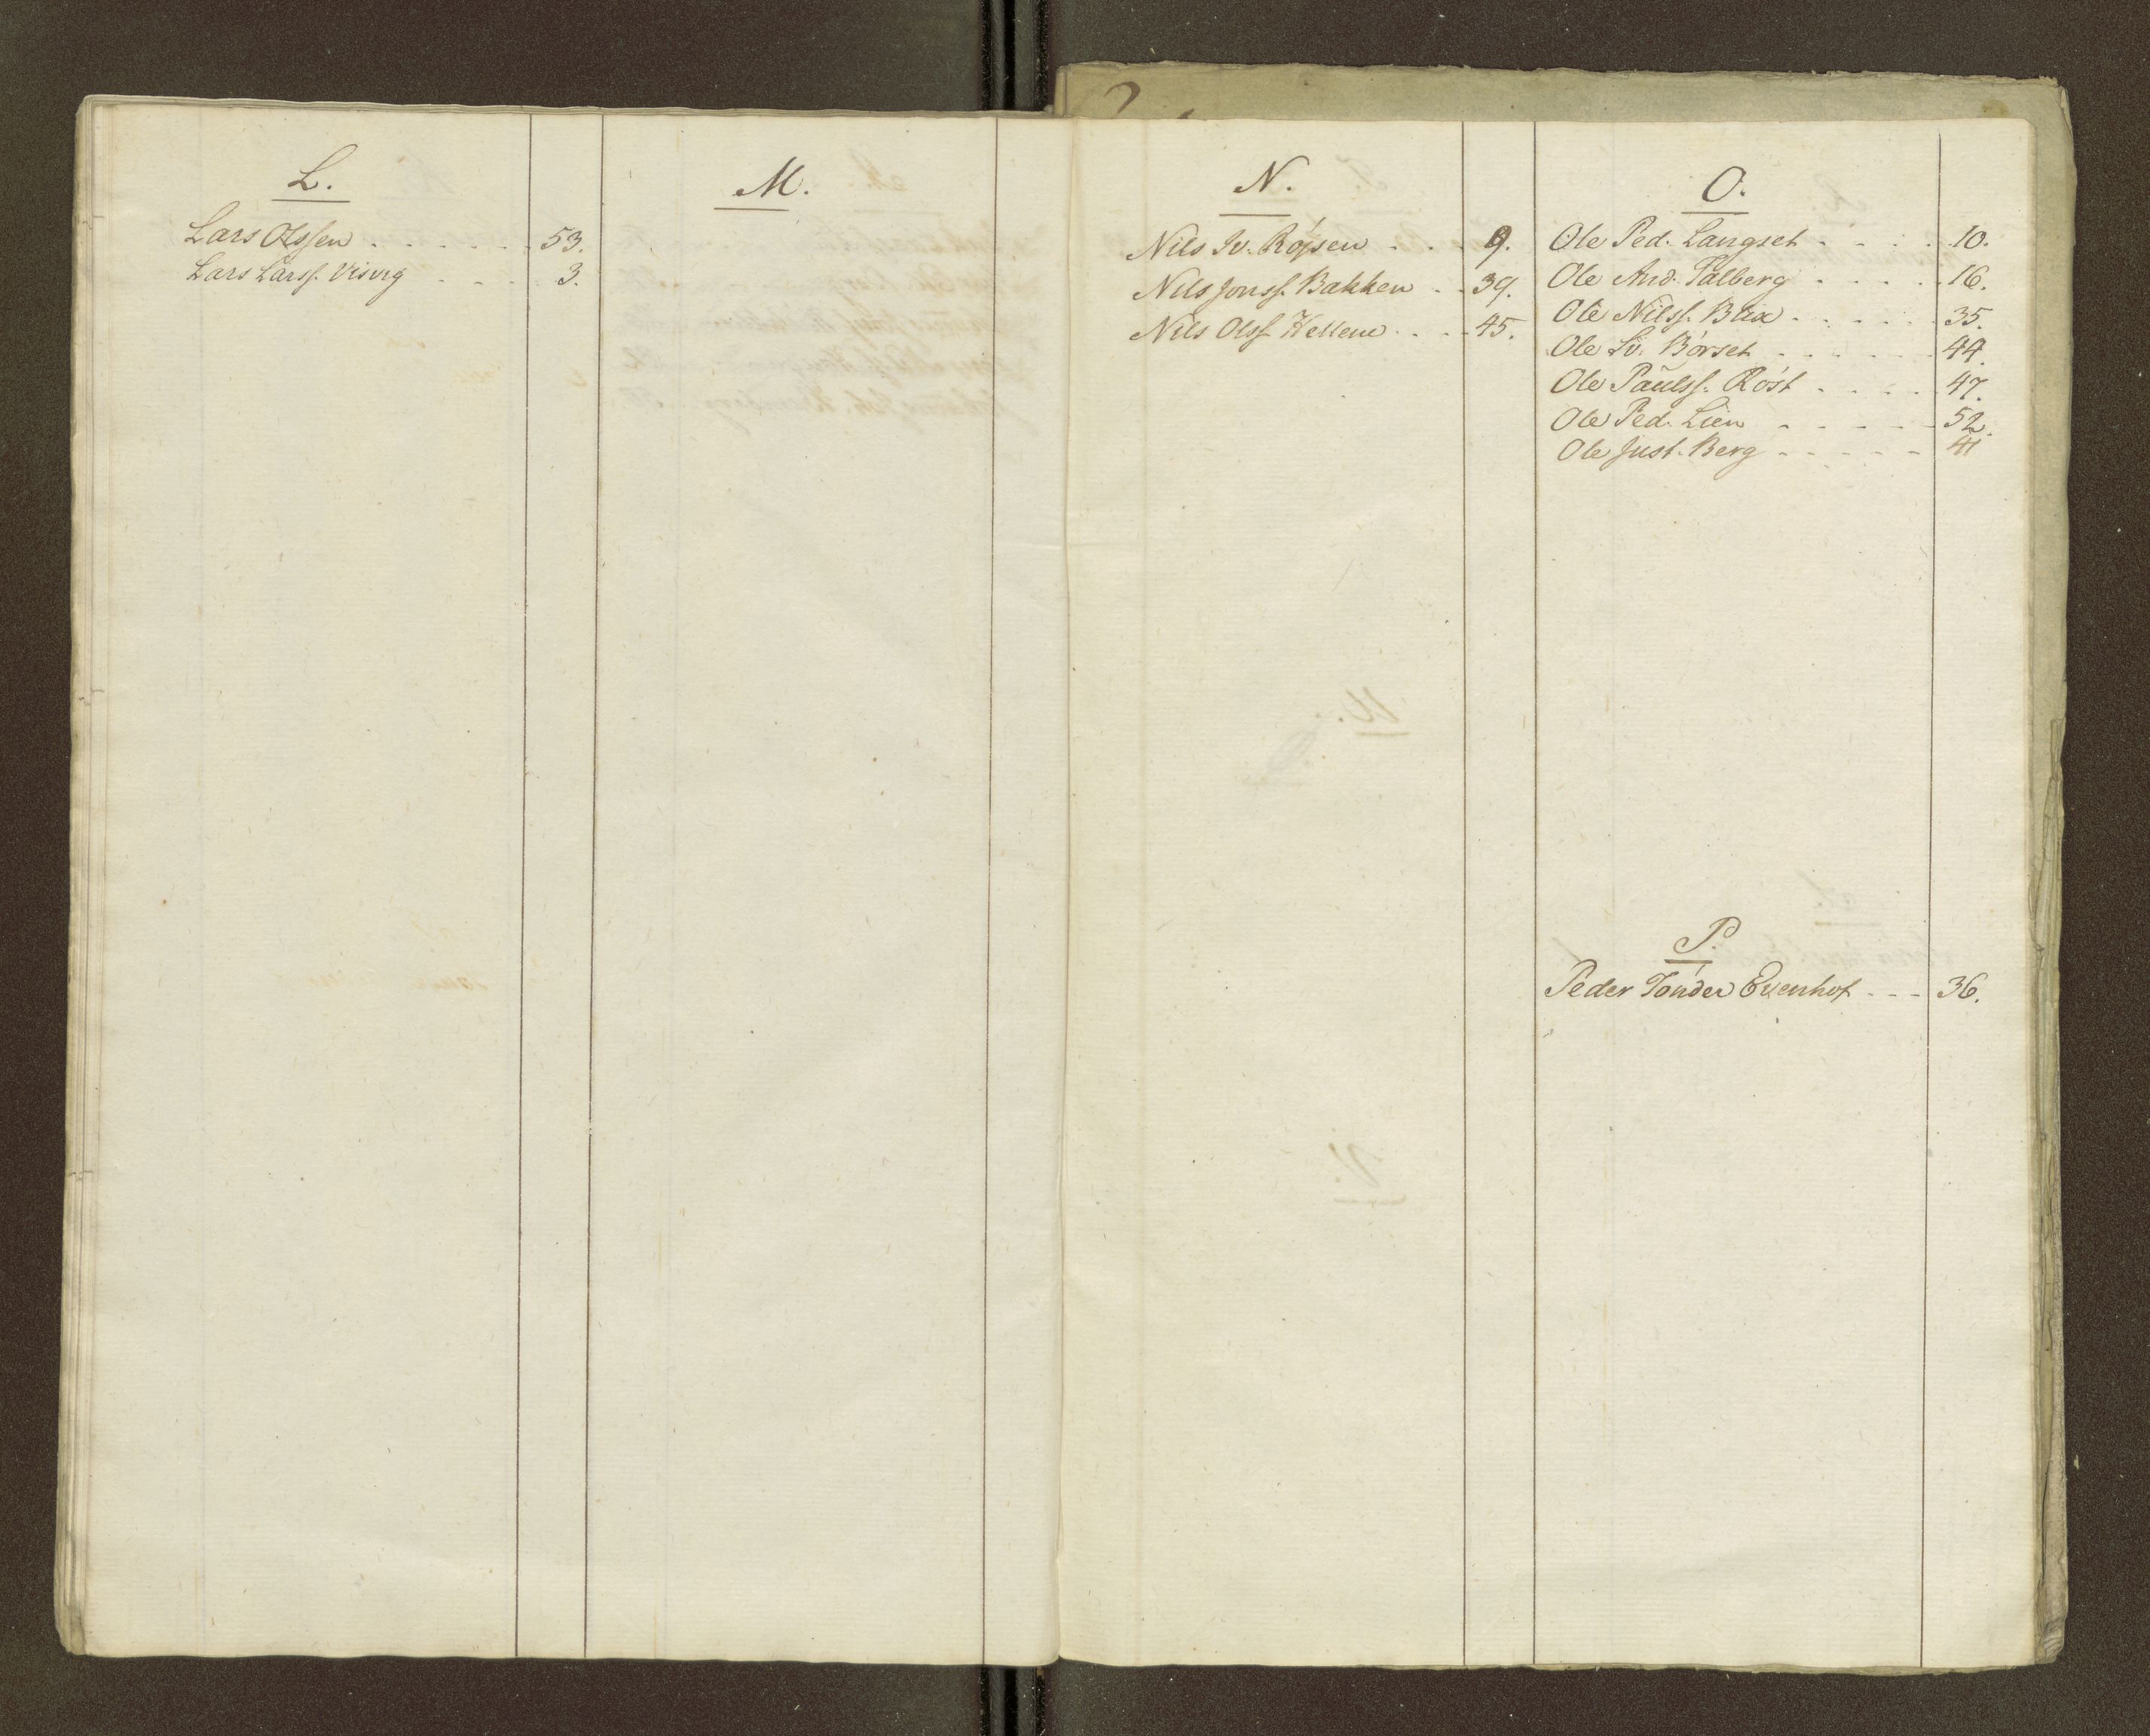 L.
Lars Olssen . . . . . . 53.
Lars Larss. Visvig . . . . 3.
M.
N.
Nils Iv. Røjsen . . . 9.
Nils Jonss. Bakken . . 39.
Nils Olss. Hellem . . . 45.
O.
Ole Ped. Langset . . . . 10.
Ole And. Talberg . . . . . 16.
Ole Nilss. Blix . . . . . 35.
Ole Iv. Börset . . . . . . 44.
Ole Paulss. Röst . . . . 47.
Ole Ped. Lien . . . . . 52.
Ole Just. Berg . . . . . 41
P.
Peder Tönder Evenhof . . . 36.